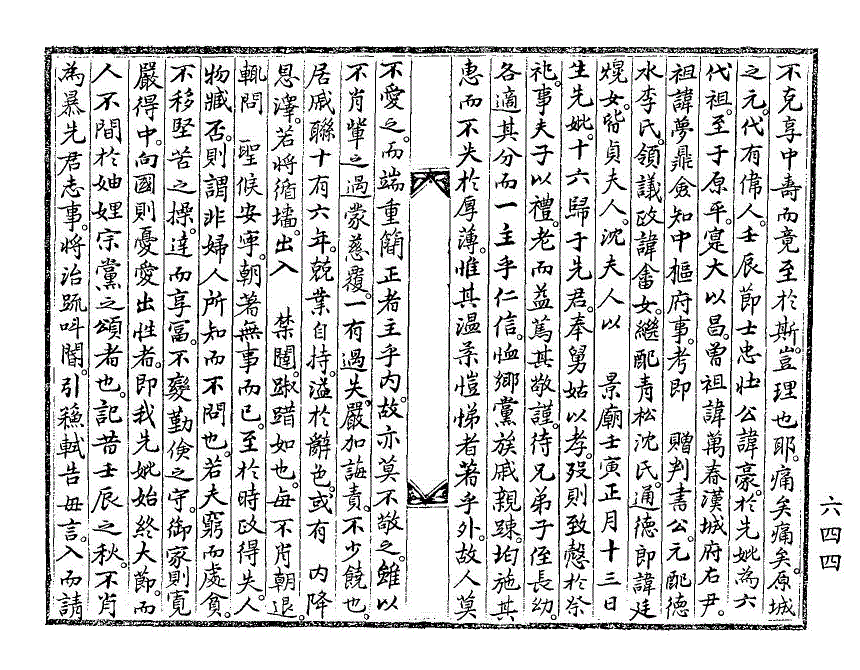 不克享中壽而竟至於斯豈理也耶痛矣痛矣原城
之元代有偉人壬辰節士忠壯公諱豪於先妣為六
代祖至于原平寔大以昌曾祖諱萬春漢城府右尹
祖諱夢鼎僉知中樞府事考即 贈判書公元配德
水李氏領議政諱畬女繼配青松沈氏通德郎諱廷
熀女皆貞夫人沈夫人以 景廟壬寅正月十三日
生先妣十六歸于先君奉舅姑以孝歿則致慤於祭
祀事夫子以禮老而益篤其敬謹待兄弟子侄長幼
各適其分而一主乎仁信恤鄉黨族戚親踈均施其
惠而不失於厚薄惟其溫柔愷悌者著乎外故人莫
不愛之而端重簡正者主乎內故亦莫不敬之雖以
不肖輩之過蒙慈覆一有過失嚴加誨責不少饒也
居戚聯十有六年兢業自持溢於辭色或有 內降
恩澤若將循墻出入 禁闥踧踖如也每不肖朝退
輒問 聖候安寧朝著無事而已至於時政得失人
物臧否則謂非婦人所知而不問也若夫窮而處貧
不移堅苦之操達而享富不變勤儉之守御家則寬
嚴得中向國則憂愛出性者即我先妣始終大節而
人不間於妯娌宗黨之頌者也記昔壬辰之秋不肖
為暴先君志事將治疏叫閽引蘓軾告毋言入而請
六四四